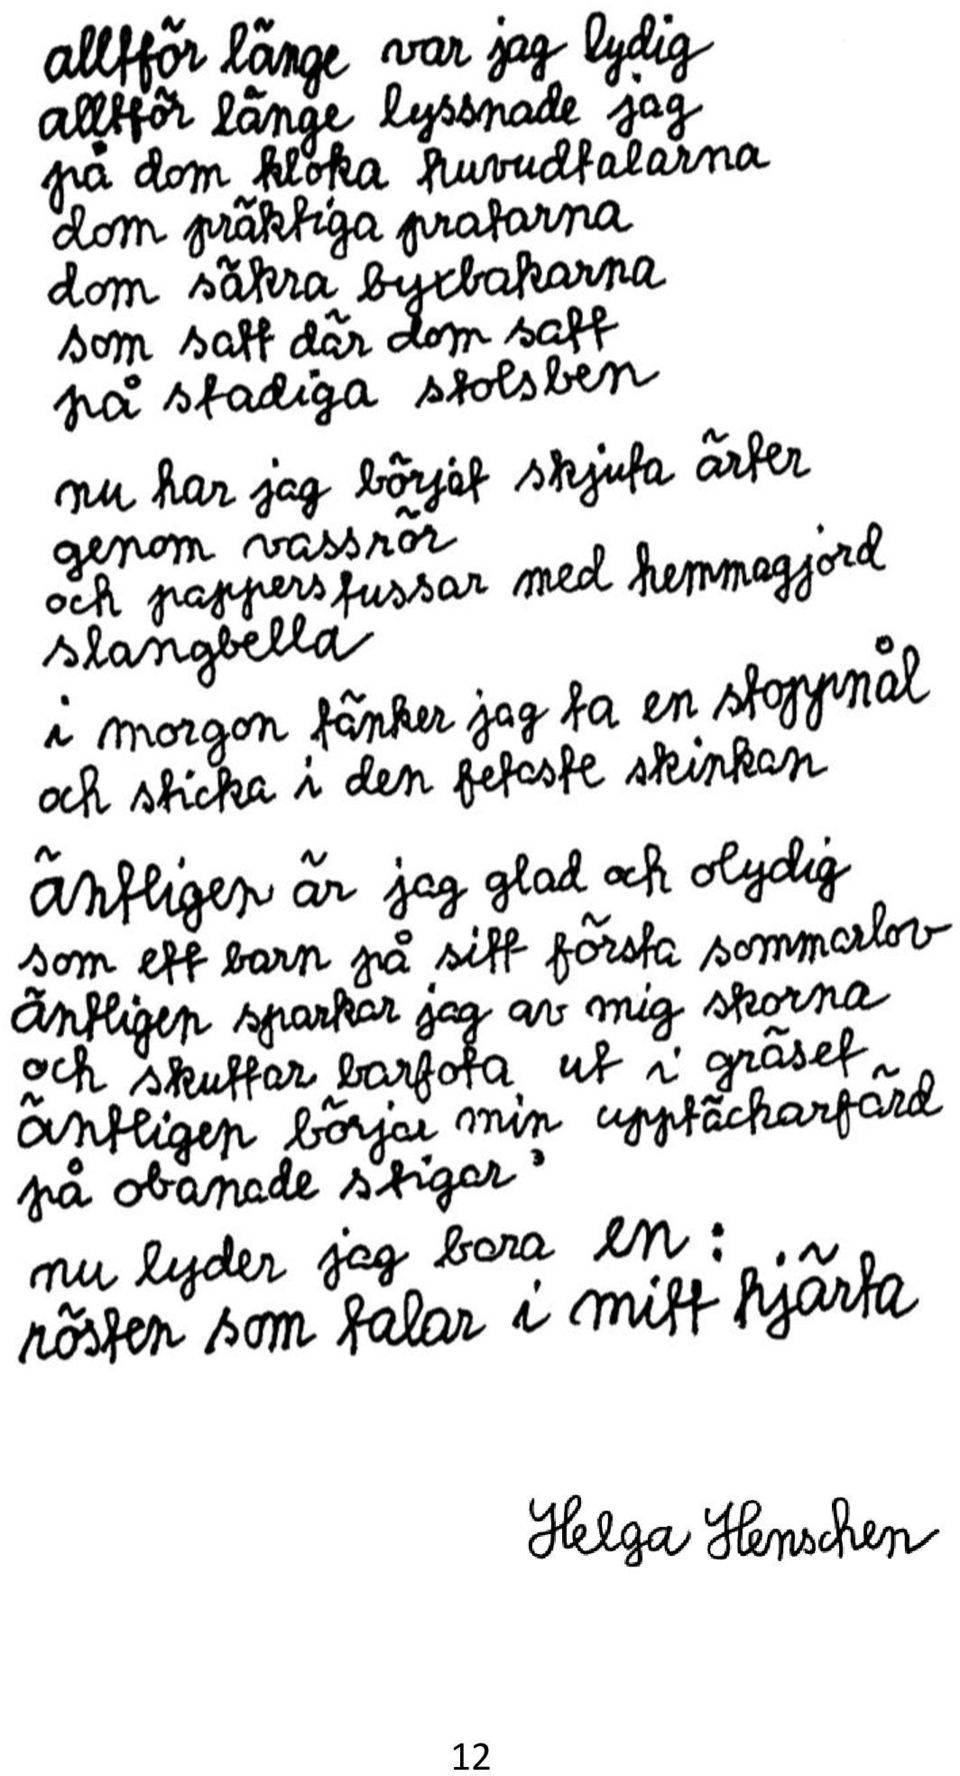 alltför länge var jag lydig
alltför länge lyssnade jag
på dom kloka huvudtalarna
dom präktiga pratarna
dom säkra byxbakarna
som satt där dom satt
på stadiga stolsben
nu har jag börjat skjuta ärter
genom vassrör
och papperstussar med hemmagjord
slangbella
i morgon tänker jag ta en stoppnål
och sticka i den fetaste skinkan
äntligen är jag glad och olydig
som ett barn på sitt första sommarlov
äntligen sparkar jag av mig skorna
och skuttar barfota ut i gräset
äntligen börjar min upptäckarfärd
på obanade stigar
nu lyder jag bara en:
rösten som talar i mitt hjärta
Helga Henschen
12